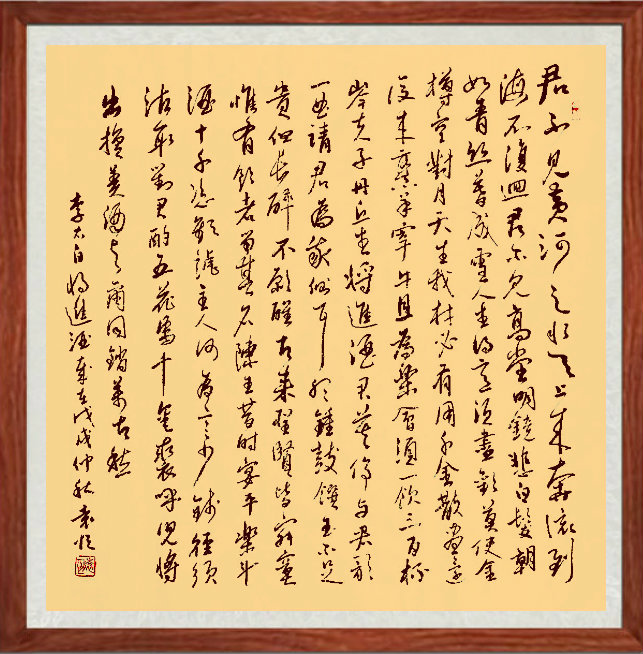 君不見黃河之水天上來奔流到
海不復迴君不見高堂明鏡悲白髮朝
如青絲暮成雪人生得意須盡歡莫使金
樽空對月天生我材必有用千金散盡還
復來烹羊宰牛且為樂會須一飲三百杯
岑夫子丹丘生將進酒君莫停與君歌
一曲請君為我側耳聽鐘鼓饌玉不足
貴但長醉不願醒古來聖賢皆寂寞
惟有飲者留其名陳王昔時宴平樂斗
酒十千恣歡謔主人何為言少錢徑須
沽取對君酌五花馬千金裘呼兒將
出換美酒與爾同銷萬古愁
李太白將進酒歲在戊戌仲秋